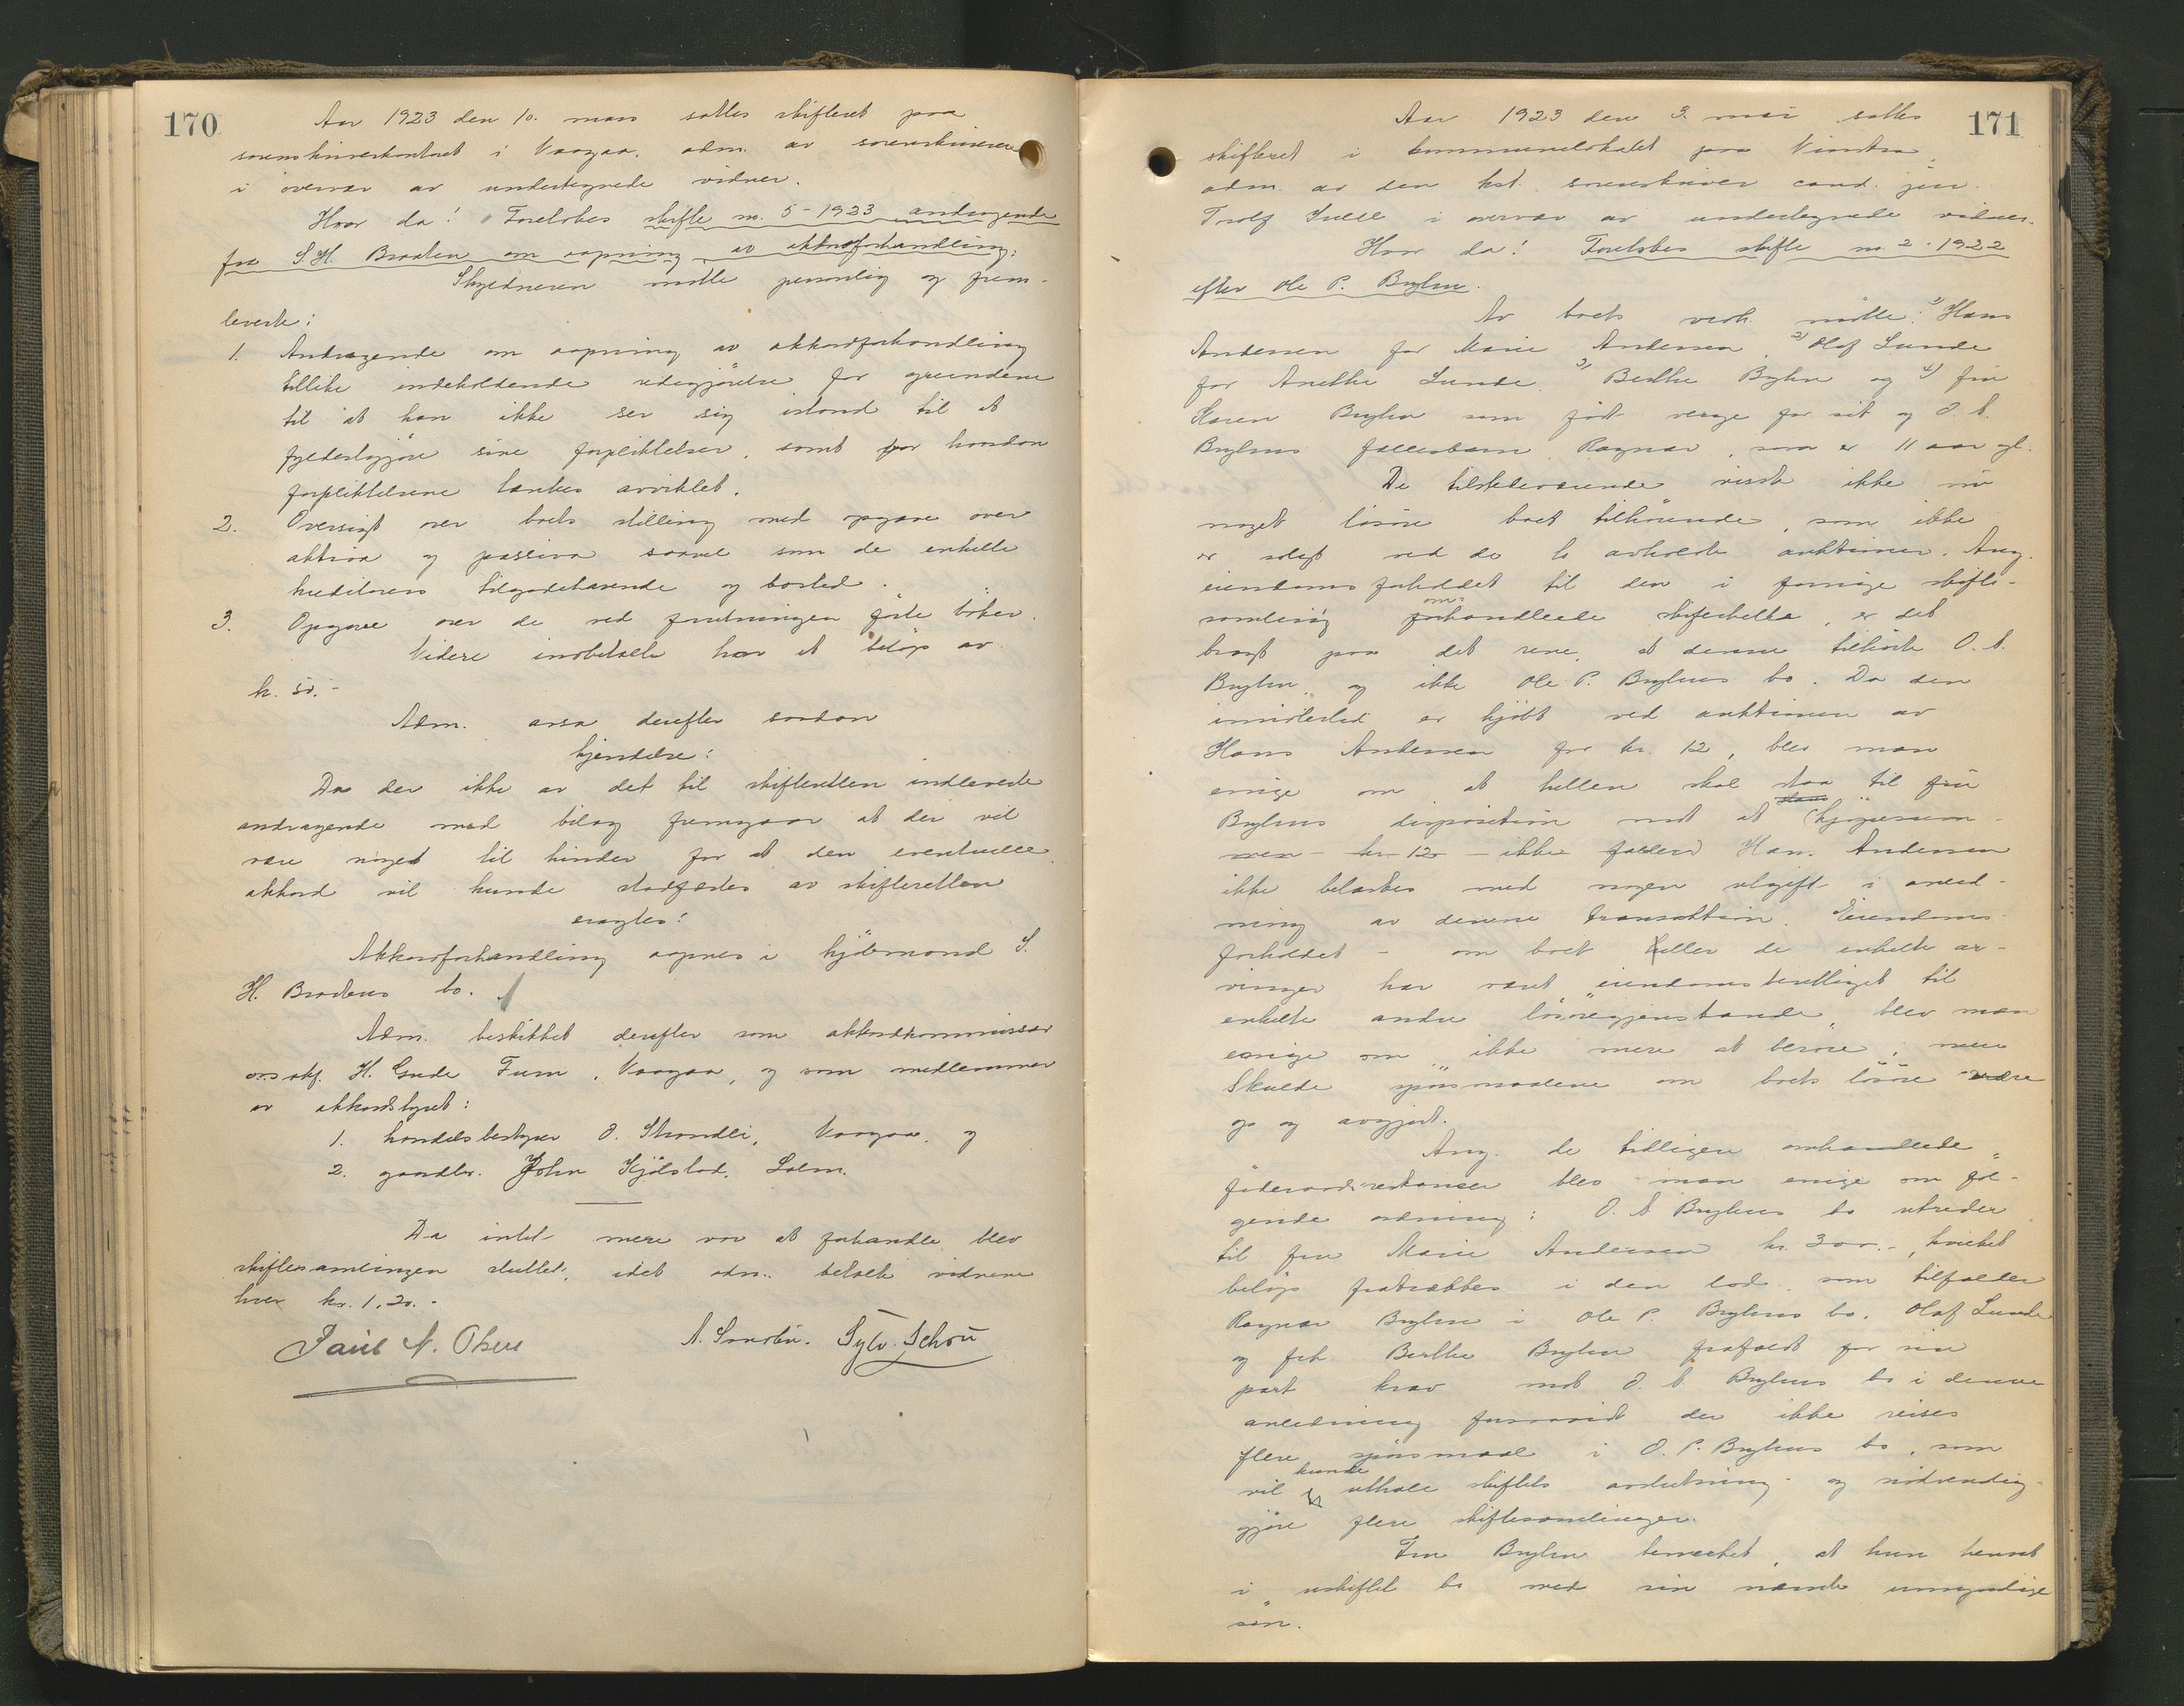 170
Aar 1923 den 10. mars sattes skifteret paa
sorenskriverkontoret i Vaagaa, adm. av sorenskriveren
i overvær av undertegnede vidner.
Hvor da! Foretokes skifte nr. 5-1923 andragende
fra S. H. Braaten om aapning av akkordforhandling:
Skyldneren møtte personlig og frem-
leverte:
1. Andragende om aapning av akkordforhandling
tillike indeholdende redegjörelse for grundene
til at han ikke ser sig istand til at
fyldestgjøre sine forpliktelser, samt for hvordan
forpliktelsene tænkes avviklet.
2. Oversigt over boets stilling med opgave over
aktiva og passiva saavel som de enkelte
kreditorers tilgodehavende og bosted.
3. Opgave over de ved forretningen førte bøker.
Videre indbetalte han et beløp av
kr. 50.-
Adm. avsa derefter saadan
kjendelse:
Da der ikke av det til skifteretten indleverte
andragende med bilag fremgaar at der vil
være noget til hinder for at den eventuelle
akkord vil kunde stadfæstes av skifteretten
eragtes:
Akkordforhandling aapnes i kjøbmand S.
H. Braatens bo.
Adm. beskikket derefter som akkordkommissær
o.r.sakf. H. Gude Furu, Vaagaa, og som medlemmer
av akkordstyret:
1. handelsbestyrer O. Strandli, Vaagaa, og
2. gaardbr. John Kjølstad, Lalm.
Da intet mere var at forhandle blev
skiftesamlingen sluttet, idet adm. betalte vidnene
hver kr. 1.20.-
Paul N. Olsen A. Sandbu. Sylv. Schou
171
Aar 1923 den 3. mai sattes
skifteret i kommunelokalet paa Vinstra,
adm. av den kst. sorenskriver cand. jur.
i overvær av undertegnede vidner.
Hvor da! Foretokes skifte nr. 2-1922
efter Ole P. Bryhn.
Av boets vedk. møtte: 1) Hans
Andersen for Marie Andersen, 2) Olaf Lunde
for Anethe Lunde, 3) Berthe Bryhn og 4) fru
Karen Bryhn som født verge for sit og O. A.
Bryhns fællesbarn Ragnar, som er 11 aar gl.
De tilstedeværende visste ikke nu
noget løsøre boet tilhørende, som ikke
er solgt ved de to avholdte auktioner. Ang.
eiendomsforholdet til den i forrige skifte-
samling omhandlede skiferhelle, er det
bragt paa det rene, at denne tilhørte O. A.
Bryhn og ikke Ole P. Bryhns bo. Da den
imidlertid er kjøbt ved auktionen av
Hans Andersen for kr. 12, blev man
enige om at hellen skal staa til fru
Bryhns disposition mot at kjøpesum-
men - kr 12 - ikke falder Hans Andersen
ikke belastes med nogen utgift i anled-
ning av denne transaktion. Eiendoms-
forholdet - om boet eller de enkelte ar-
vinger har været eiendomsberettiget til
enkelte andre løsøregjenstande, blev man
enige om ikke mere at berøre, men
skulde spørsmaalene om boets løsøre være
op og avgjort.
Ang. de tidligere omhandlede
føderaadsrestanser blev man enige om føl-
gende ordning: O. A. Bryhns bo utreder
til fru Marie Andersen kr. 300.-, hvilket
beløp fratrækkes i den lod, som tilfalder
Ragnar Bryhn i Ole P. Bryhns bo. Olaf Lunde
og frk. Berthe Bryhn frafaldt for sin
part krav mot O. A. Bryhns bo i denne
anledning forsaavidt der ikke reises
flere spørsmaal i O. P. Bryhns bo, som
vil kunde uthale skiftets avslutning og nødvendig-
gjøre flere skiftesamlinger.
Fru Bryhn bemerket, at hun hensat
i uskiftet bo med sin nævnte umyndige
søn.